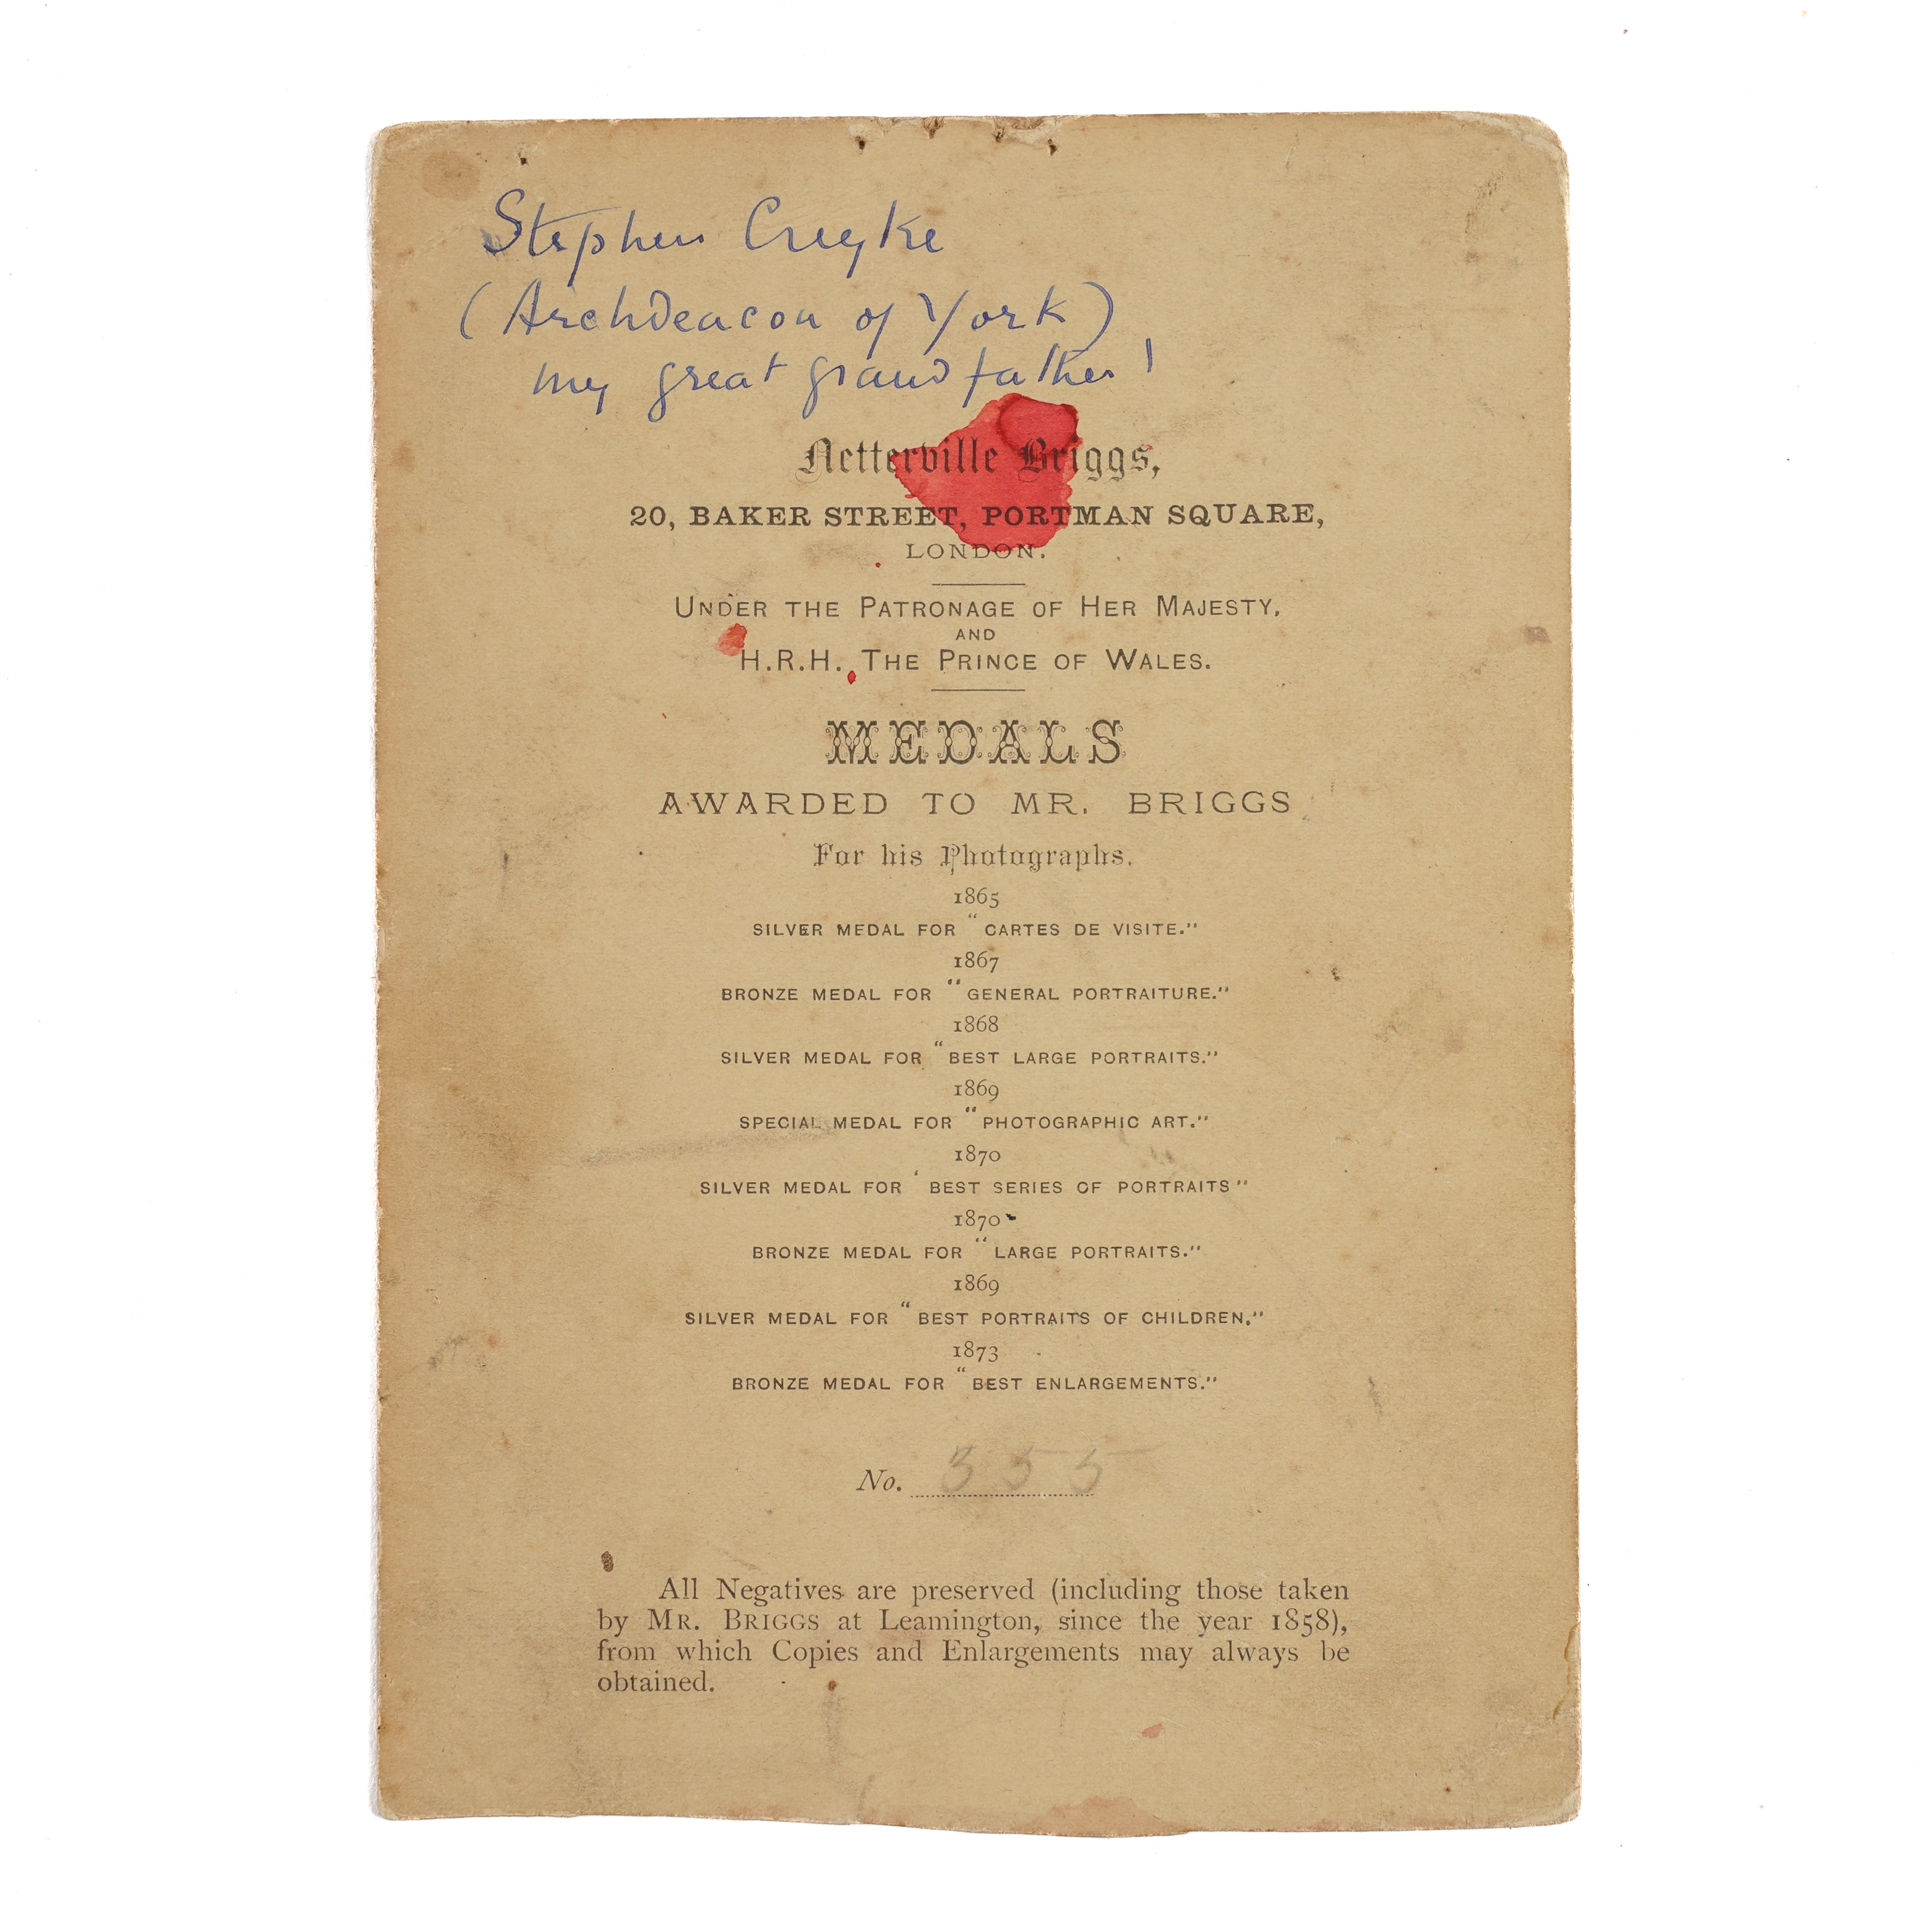 Stephen Creyke
(Archdeacon of York)
my great grandfather!
Netterville Briggs,
20, BAKER STREET, PORTMAN SQUARE,
LONDON.
UNDER THE PATRONAGE OF HER MAJESTY,
AND
H.R.H. THE PRINCE OF WALES.
MEDALS
AWARDED TO MR. BRIGGS
For his Photographs.
1865
SILVER MEDAL FOR "CARTES DE VISITE."
1867
BRONZE MEDAL FOR "GENERAL PORTRAITURE."
1868
SILVER MEDAL FOR "BEST LARGE PORTRAITS."
1869
SPECIAL MEDAL FOR "PHOTOGRAPHIC ART."
1870
SILVER MEDAL FOR 'BEST SERIES OF PORTRAITS"
1870
BRONZE MEDAL FOR "LARGE PORTRAITS."
1869
SILVER MEDAL FOR "BEST PORTRAITS OF CHILDREN."
1873
BRONZE MEDAL FOR "BEST ENLARGEMENTS."
No. 355
All Negatives are preserved (including those taken
by MR. BRIGGS at Leamington, since the year 1858),
from which Copies and Enlargements may always be
obtained.